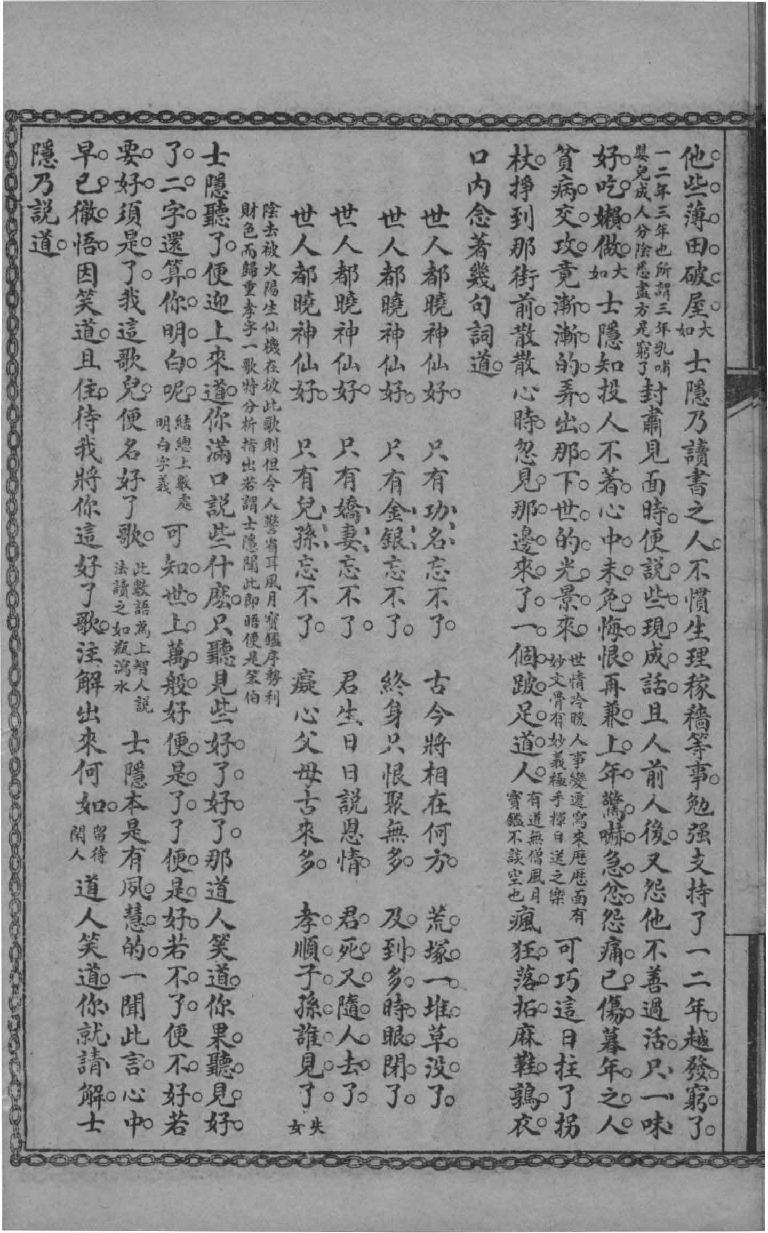 他些薄田破屋大如士隱乃讀書之人不慣生理稼穡等事勉强支持了一二年越發窮了
一二年三年也所謂三年乳哺嬰兒成人分陰悉盡方是窮了封肅見面時便説些現成話且人前人後又怨他不善過活只一味
好吃嬾做大如士隱知投人不著心中未免悔恨再兼上年驚嚇急忿怨痛已傷暮年之人
貧病交攻竟漸漸的弄出那下世的光景來世情冷暖人事變遷寫來歷歷面有妙文骨有妙義極乎撣日送之樂可巧這日拄了拐
杖掙到那街前散散心時忽見那邊來了一個跛足道人有道無僧風月寶鑑不談空也瘋狂落拓麻鞋鶉衣
口内念著幾句詞道
世人都曉神仙好 只有功名忘不了 古今將相在何方 荒塚一堆草没了
世人都曉神仙好 只有金銀忘不了 終身只恨聚無多 及到多時眼閉了
世人都曉神仙好 只有嬌妻忘不了 君生日日説恩情 君死又隨人去了
世人都曉神仙好 只有兒孫忘不了 癡心父母古來多 孝順子孫誰見了失女
陰去被火陽生仙機在彼此歌則但令人警省耳風月寶鑑序勢利
財色而歸重孝字一歌特分析指出若謂士隱聞此即晤便是笨伯
士隱聽了便迎上來道你滿口説些什麽只聽見些好了好了那道人笑道你果聽見好
了二字還算你明白呢結總上數處明白字義可知世上萬般好便是了了便是好若不了便不好若
要好須是了我這歌兒便名好了歌此數語爲上智人説法讀之如瓶瀉水士隱本是有夙慧的一聞此言心中
早已徹悟因笑道且住待我將你這好了歌注解出來何如留待閑人道人笑道你就請解士
隱乃説道